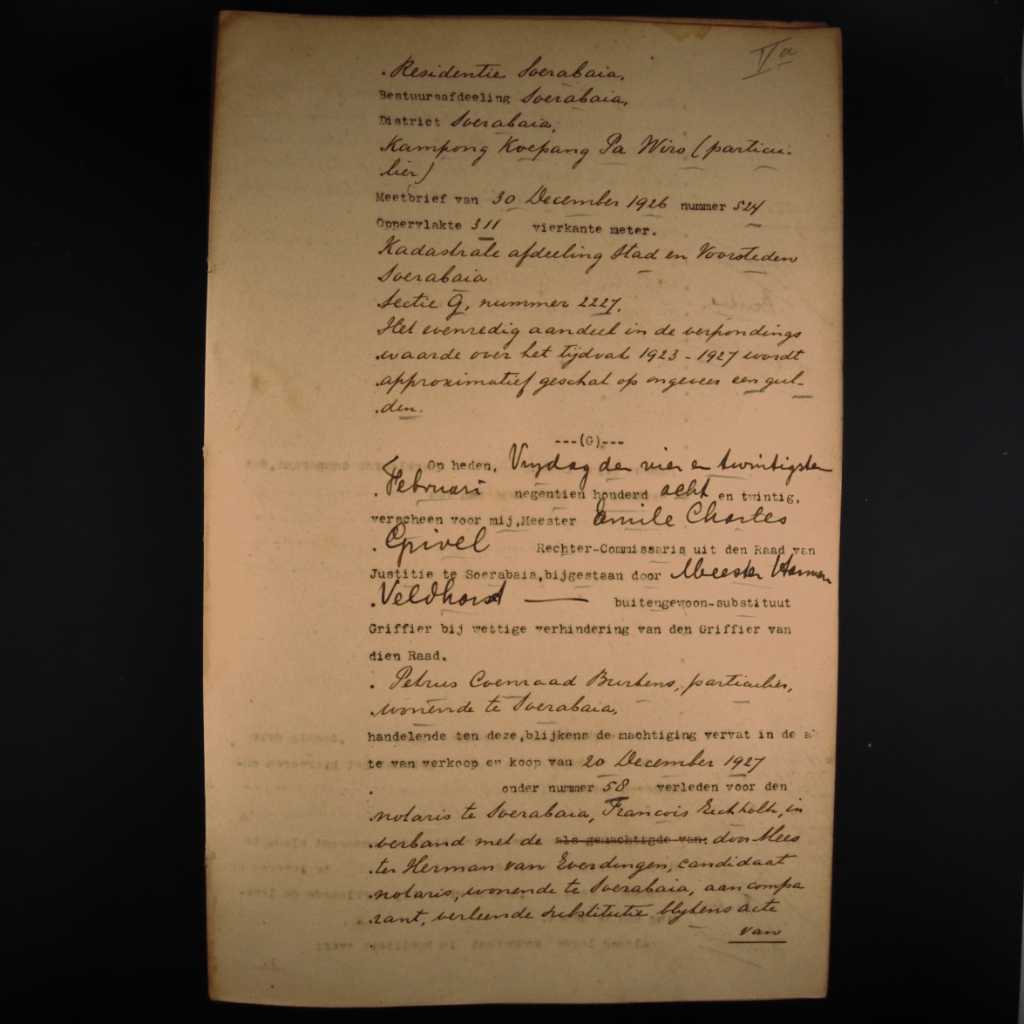 Va
Residentie Soerabaia,
Bestuursafdeeling Soerabaia,
District Soerabaia,
Kampong Koepang Pa Wiro (particu-
lier)
Meetbrief van 30 December 1926 nummer 524
Oppervlakte 311 vierkante meter.
Kadastrale afdeeling Stad en Voorsteden
Soerabaia
Sectie G, nummer 2227.
Het evenredig aandeel in de verpondings
waarde over het tijdvak 1923 - 1927 wordt
approximatief geschat op ongeveer een gul-
den.
---(G)---
Op heden, Vrydag den vier en twintigsten
Februari negentien honderd acht en twintig,
verscheen voor mij, Meester Emile Charles
Rechter-Commissaris uit den Raad van
Justitie te Soerabaia, bijgestaan door Meester Harmen
Veldhorst buitengewoon-substituut
Griffier bij wettige verhindering van den Griffier van
dien Raad.
Petrus Coenraad Burkens, particulier,
wonende te Soerabaia,
handelende ten deze, blijkens de machtiging vervat in de a
te van verkoop en koop van 20 December 1927
onder nummer 58 verleden voor den
notaris te Soerabaia, Francois, in
verband met de als gemachtigde van door Mees
ter Herman van Everdingen, candidaat
notaris, wonende te Soerabaia, aan compa
rant, verleende substitutie blykens acte
van